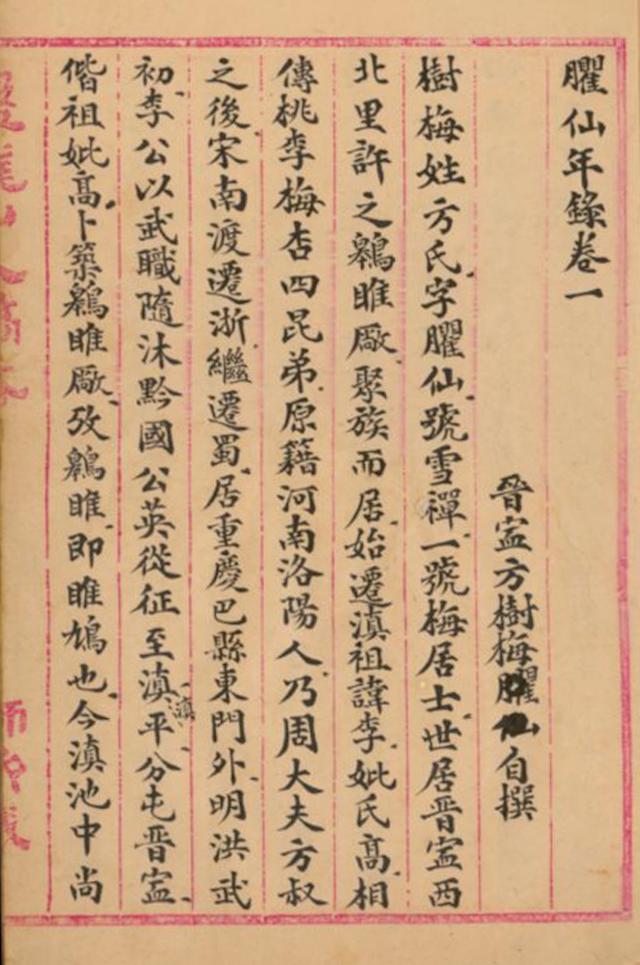 臞仙年錄卷一
晉寍方樹梅臞仙自撰
樹梅姓方氏字臞仙號雪禪一號梅居士世居晉寍西
北里許之鷎雎廠聚族而居始遷滇祖諱李妣氏高相
傳桃李梅杏四昆弟原籍河南洛陽人乃周大夫方叔
之後宋南渡遷浙繼遷蜀居重慶巴縣東門外明洪武
初李公以武職隨沐黔國公英從征至滇滇平分屯晉寍
偕祖妣高卜築鷎雎廠攷鷎雎即雎鳩也今滇池中尚